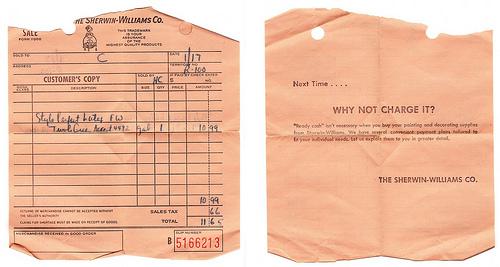 THE SHERWIN-WILLIAMS CO.
SALE
THIS TRADEMARK
IS YOUR
ASSURANCE
OF THE
HIGHEST QUALITY PRODUCTS
SOLD TO
C
DATE
1/17
ADDRESS
TERRITORY NO.
R-100
CUSTOMER'S COPY
SOLD BY
HC
IF PAID BY CHECK ENTER
$
DESCRIPTION
SIZE QTY PRICE AMOUNT
Style Perfect Latex FW
gal 1 10 99
10 99
RETURNS OF MERCHANDISE CANNOT BE ACCEPTED WITHOUT
THE SELLER'S AUTHORITY
CLAIMS FOR SHORTAGE MUST BE MADE ON RECEIPT OF GOODS.
SALES TAX 66
TOTAL 11 65
MERCHANDISE RECEIVED IN GOOD ORDER
B
SLIP NUMBER
5166213
Next Time . . . .
WHY NOT CHARGE IT?
"Ready cash" isn't necessary when you buy your painting and decorating supplies
from Sherwin-Williams. We have several convenient payment plans tailored to
fit your individual needs. Let us explain them to you in greater detail.
THE SHERWIN-WILLIAMS CO.